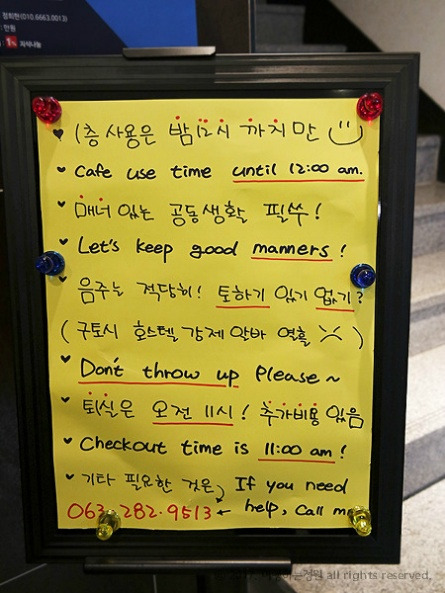 정회현(010.6663.0013)
1층 사용은 밤 12시 까지만
Cafe use time until 12:00 am.
매너 있는 공동생활 필쑤!
Let's keep good manners!
음주는 적당히! 토하기 있기 없기?
(구토시 호스텔 강제 알바 열흘 )
Don't throw up Please~
퇴실은 오전 11시! 추가비용 있음
Checkout time is 11:00 am!
기타 필요한 것은, If you need
063.282.9513 ← help, Call me
all rights reserved.